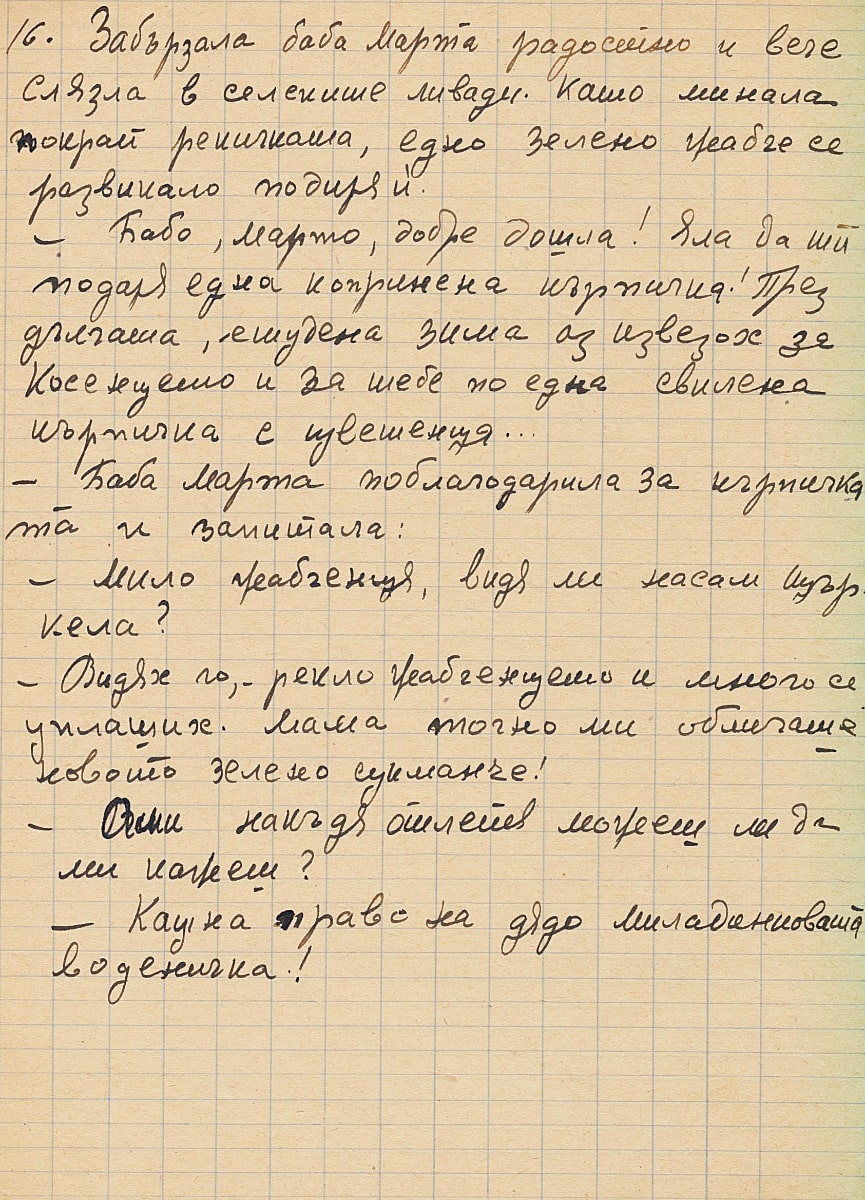 16. Забързала баба Марта радостно и вече
слязла в селските ливади. Като минала
покрай рекичката, едно зелено жабче се
развикало подиря й.
– Бабо, Марто, добре дошла! Яла да ти
подаря една копринена кърпичка! През
дългата, студена зима аз извезох за
Косенцето и за тебе по една свилена
кърпичка с цветенця...
– Баба Марта поблагодарила за кърпичка
та и запитала:
– Мило жабченця, видя ли насам щър-
кела?
– Видях го, – рекло жабченцето и много се
уплаших. Мама точно ми обличаше
новото зелено сукманче!
– накъдя отлетя можеш ли да
ми кажеш?
– Кацна право на дядо Миладинковата
воденичка!